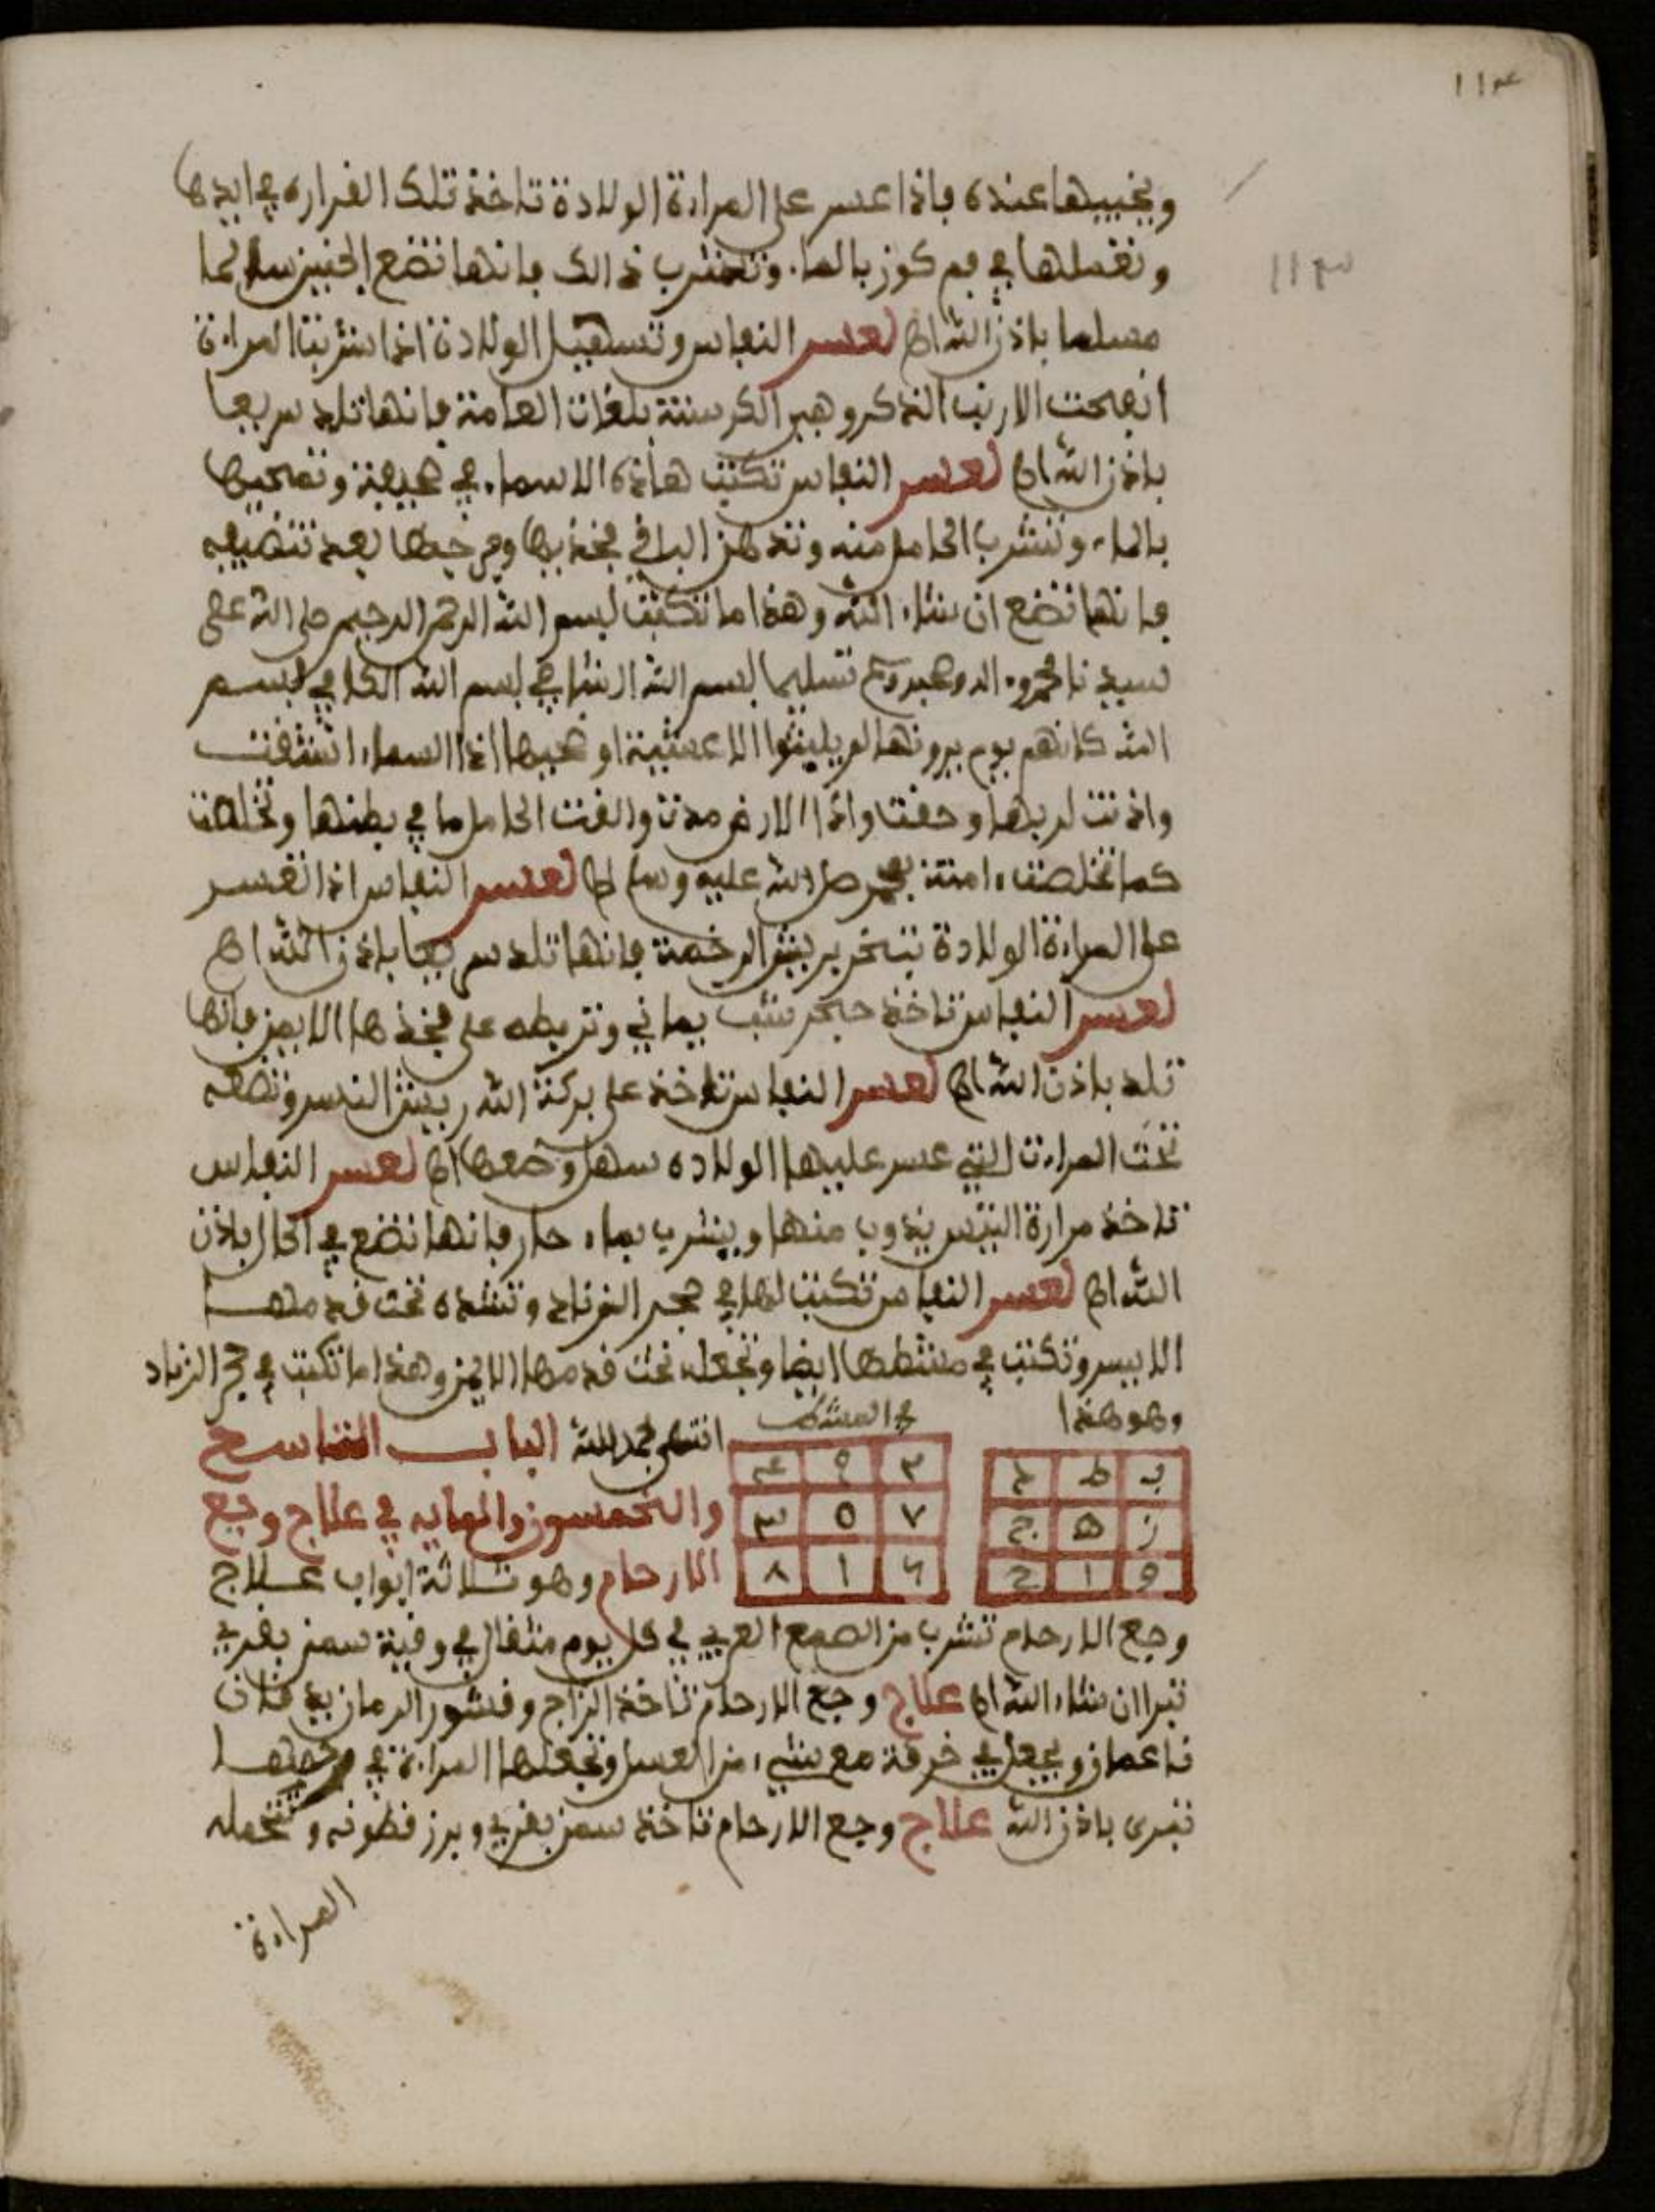 ١١٤
١١٣
ويخبيها عنده فاذا عسر على المراءة الولادة تاخذ تلك الفراره في ايدها
وتغسلها في فم كوز بالماء وتشرب ذالك فانها تضع الجنين سالما
مسلما باذن الله اهـ لعسر النفاس وتسهيل الولادة اذا شربت المراءة
انفحت الارنب الذكر وهي الكرستة بلغات العامة فانها تلد سريعا
باذن الله اهـ لعسر النفاس تكتب هاذه الاسماء في صحيفة وتمحيها
بالماء وتشرب الحامل منه وتدهن الباقي فخذيها وفرجها بعد تنضيفه
فانها تضع ان شاء الله وهذا ما تكتب بسم الله الرحمن الرحيم صلى الله على
سيدنا محمد وءاله وصحبه وسلم تسليما بسم الله الشافي بسم الله الكافي بسم
الله كانهم يوم يرونها لم يلبثوا الا عشية او ضحيها اذا السماء انشقت
واذنت لربها وحقت واذا الارض مدت والقت الحامل ما في بطنها وتخلصت
كما تخلصت ءامنة بمحمد صلى الله عليه وسلم اهـ لعسر النفاس اذا تعسر
على المراءة الولادة تبخر بريش الرخمة فانها تلد سريعا باذن الله اهـ
لعسر النفاس تاخذ حجر شب يماني وتربطه على فخذها الايمن فانها
تلد باذن الله اهـ لعسر النفاس تاخذ على بركة الله ريش النسر وتضعه
تحت المراءة التي عسر عليها الولاده سهل وضعها اهـ لعسر النفاس
تاخذ مرارة التيس يذوب منها ويشرب بماء حار فانها تضع في الحال باذن
الله اهـ لعسر النفاس تكتب لها في حجر الزناد وتشده تحت قدمها
الايسر وتكتب في مشطها ايضا وتجعله تحت قدمها الايمن وهذا ما تكتب في حجر الزناد
وهو هذا
في المشط
ب ط د
ز ه ج
و ا ح
٢ ٩ ٤
٧ ٥ ٣
٦ ١ ٨
انتهى بحمد الله الباب التاسع
والخمسون والمايه في علاج وجع
الارحام وهو ثلاثة ابواب علاج
وجع الارحام تشرب من الصمغ العربي في كل يوم مثقال في وقية سمن بقري
تبرا ان شاء الله اهـ علاج وجع الارحام تاخذ الزاج وقشور الرمان يدقان
ناعمان ويجعل في خرقة مع شيء من العسل وتجعلها المراءة في فرجها
تبرى باذن الله علاج وجع الارحام تاخذ سمن بقري وبرز قطونه وتحمله
المراءة